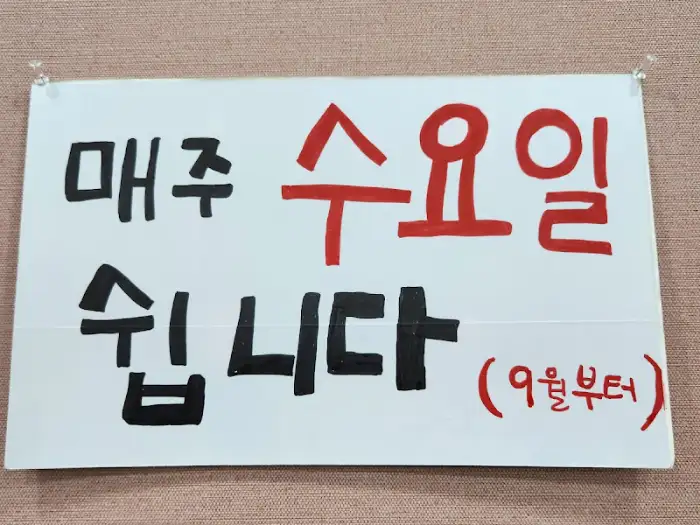 매주 수요일
쉽니다
(9월부터)